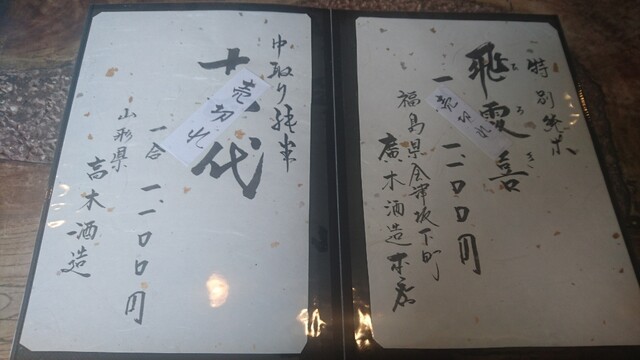 特別純米
ろき
飛露喜
売切れ
一 一一〇〇円
福島県会津坂下町
廣木酒造本店
中取り純米
十 代
売切れ
一合 一一〇〇円
山形県
高木酒造